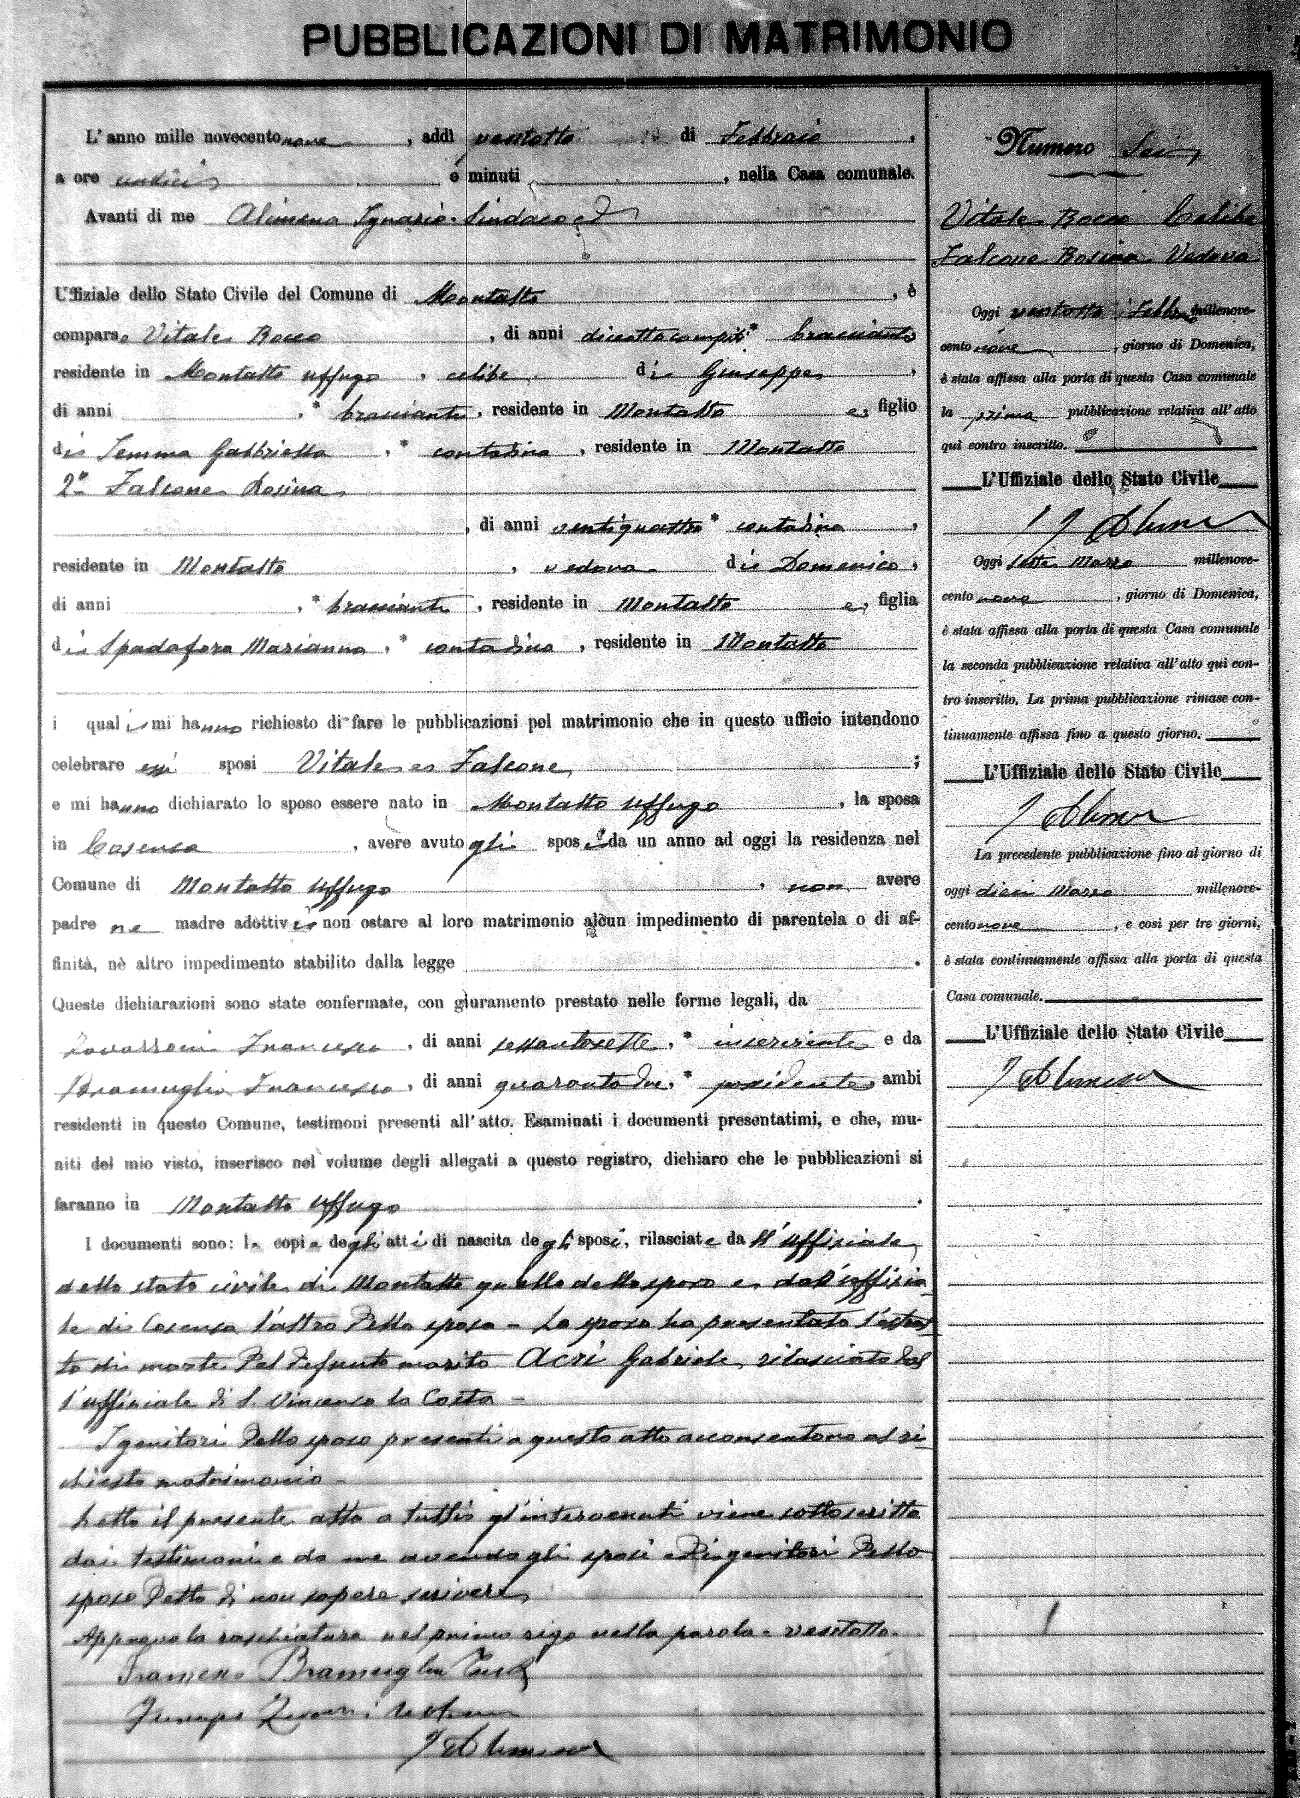 PUBBLICAZIONI DI MATRIMONIO
L'anno mille novecento nove, addì ventotto di Febbraio,
a ore undici e minuti , nella Casa comunale.
Avanti di me Alimena Ignazio Sindaco ed
Uffiziale dello Stato Civile del Comune di Montalto , è
comparso Vitale Rocco , di anni diciotto compiti * bracciante
residente in Montalto Uffugo , celibe di Giuseppe ,
di anni , * bracciante, residente in Montalto e, figlio
di Femma Gabbriella , * contadina , residente in Montalto
2° Falcone Rosina
, di anni ventiquattro * contadina ,
residente in Montalto , vedova di Domenico,
di anni , * bracciante, residente in Montalto e, figlia
di Spadafora Marianna , * contadina , residente in Montalto
i quali mi hanno richiesto di fare le pubblicazioni pel matrimonio che in questo ufficio intendono
celebrare essi sposi Vitale e Falcone ;
e mi hanno dichiarato lo sposo essere nato in Montalto Uffugo , la sposa
in Cosenza , avere avuto gli sposi da un anno ad oggi la residenza nel
Comune di Montalto Uffugo , non avere
padre ne madre adottivi e non ostare al loro matrimonio alcun impedimento di parentela o di af-
finità, nè altro impedimento stabilito dalla legge .
Queste dichiarazioni sono state confermate, con giuramento prestato nelle forme legali, da
Francesco , di anni sessantasette, * inserviente e da
Bramuglia Francesco , di anni quarantadue, * possidente, ambi
residenti in questo Comune, testimoni presenti all'atto. Esaminati i documenti presentatimi, e che, mu-
niti del mio visto, inserisco nel volume degli allegati a questo registro, dichiaro che le pubblicazioni si
faranno in Montalto Uffugo .
I documenti sono: le copie degli atti di nascita degli sposi, rilasciate da ll'uffiziale
dello stato civile di Montalto quella dello sposo e dall'uffizia
le di Cosenza l'altro della sposa – La sposa ha presentato l'estrat
to di morte del defunto marito Acri Gabriele rilasciato dal
l'uffiziale di S. Vincenzo la Costa –
I genitori dello sposo presenti a questo atto acconsentono al ri
chiesto matrimonio –
Letto il presente atto a tutti gl'intervenuti viene sottoscritto
dai testimoni e da me avendo gli sposi e i genitori dello
sposo detto di non sapere scrivere
Approvo la raschiatura nel primo rigo nella parola – ventotto.
Francesco Bramuglia
I Alimena
Numero Sei
Vitale Rocco Celibe
Falcone Rosina Vedova
Oggi ventotto Febbraio millenove-
cento nove , giorno di Domenica,
è stata affissa alla porta di questa Casa comunale
la prima pubblicazione relativa all'atto
qui contro inscritto.
L'Uffiziale dello Stato Civile
I Alimena
Oggi sette Marzo millenove-
cento nove , giorno di Domenica,
è stata affissa alla porta di questa Casa comunale
la seconda pubblicazione relativa all'atto qui con-
tro inscritto. La prima pubblicazione rimase con-
tinuamente affissa fino a questo giorno.
L'Uffiziale dello Stato Civile
I Alimena
La precedente pubblicazione fino al giorno di
oggi dieci Marzo millenove-
cento nove , e così per tre giorni,
è stata continuamente affissa alla porta di questa
Casa comunale.
L'Uffiziale dello Stato Civile
I Alimena